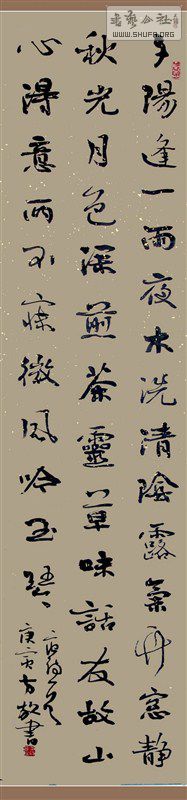 書藝公社
WWW.SHUFA.ORG
夕陽逢一雨夜木洗清陰露氣竹窗靜
秋光月色深煎茶靈草味話友故山
心得意兩不寐微風吟玉琴
庚寅方書